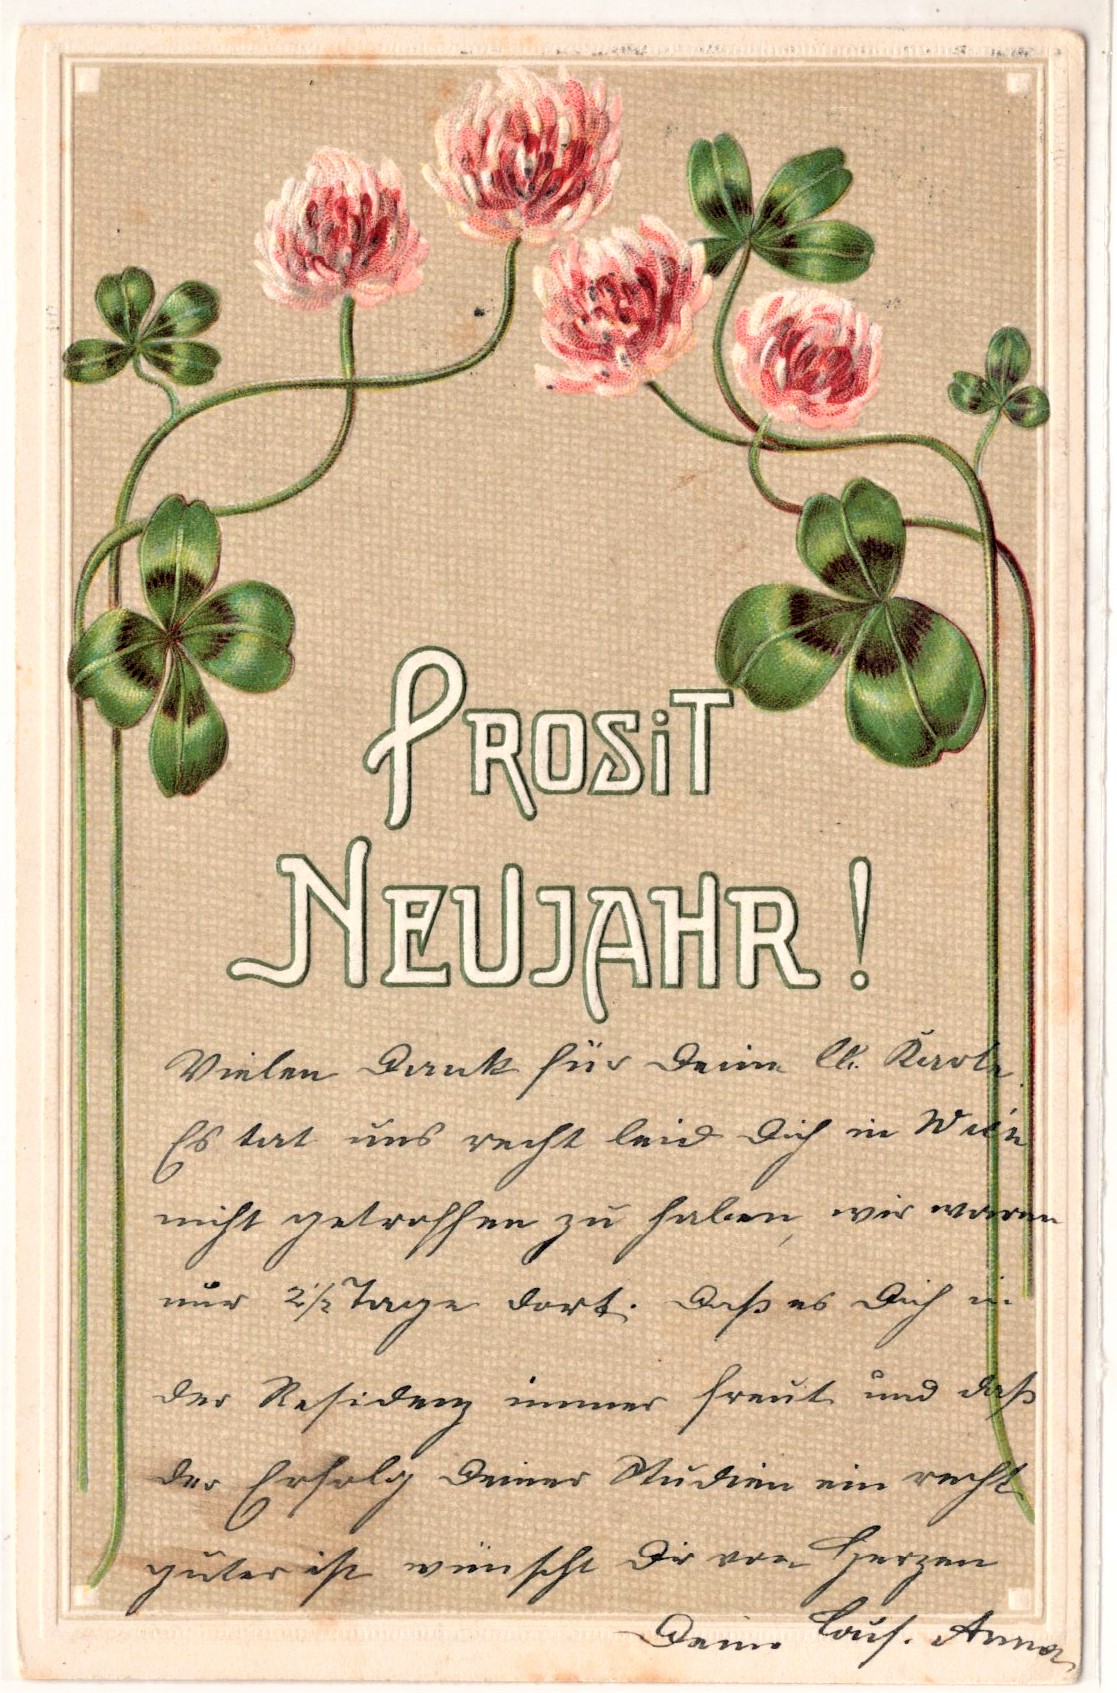 PROSIT
NEUJAHR!
Vielen Dank für Deine lb. Karte.
Es tat uns recht leid Dich in Wien
nicht getroffen zu haben, wir waren
nur 2½ Tage dort. Daß es Dich in
der Residenz immer freut und daß
der Erfolg Deiner Studien ein recht
guter ist wünscht Dir von Herzen
Deine Anna